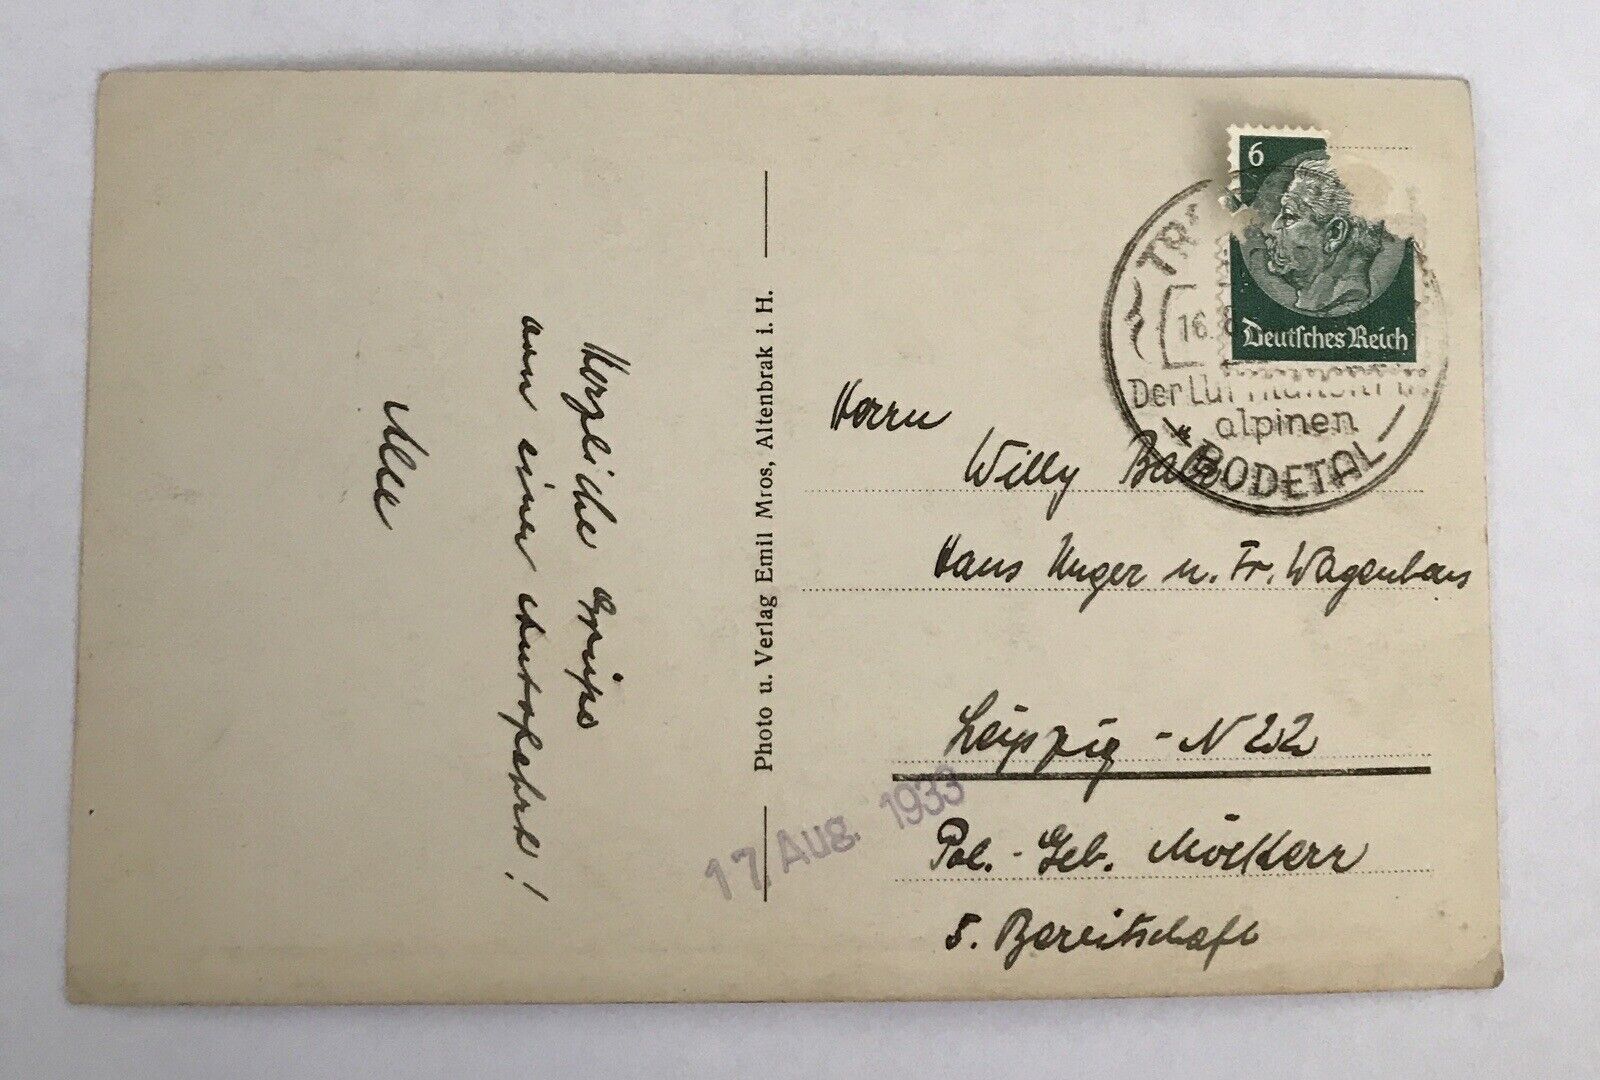 Herzliche Grüße
von einer Autofahrt!
Photo u. Verlag Emil Mros, Altenbrak i. H.
6
Deutsches Reich
16. 8
Der Luftkurort im
alpinen
BODETAL
Herrn
Willy
Hans Unger u. Fr. Wagenhaus
Leipzig - N 22
Pol. - Geb. Möckern
5. Bereitschaft
17. Aug. 1933